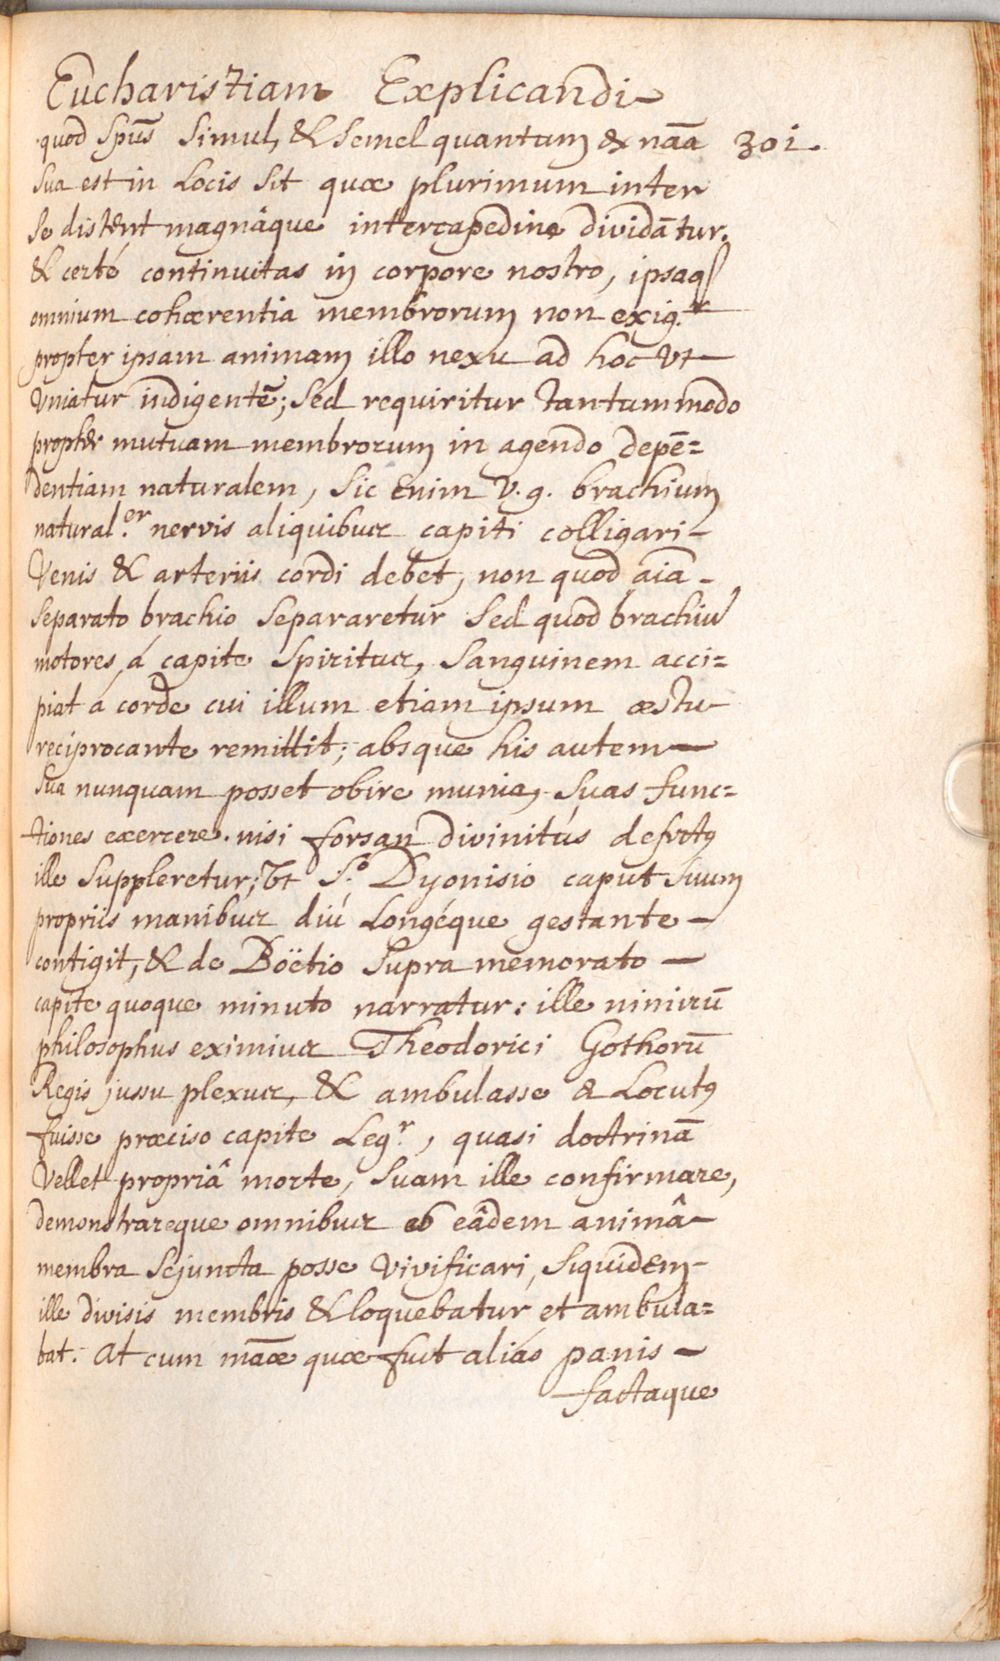 Eucharistiam Explicandi
quod Spũs Simul, & Semel quantum ex nãa 301.
Sua est in Locis Sit quæ plurimum inter
Se distent magnâque intercapedine dividãtur.
& certé continuitas in corpore nostro, ipsaq
omnium cohærentia membrorum non exig.r
propter ipsam animam illo nexu ad hoc Vt
Vniatur indigentẽ; Sed requiritur Tantummodo
propter mutuam membrorum in agendo depẽ=
dentiam naturalem, Sic enim V.g. brachium
natural.er nervis aliquibus capiti colligari
Venis & arteriis cordi debet, non quod aĩa
Separato brachio Separaretur Sed quod brachiũ
motores á capite Spiritus, Sanguinem acci=
piat á corde cui illum etiam ipsum æstu
reciprocante remittit; absque his autem
Sua nunquam posset obire munia, Suas func=
tiones exercere. nisi forsan divinitús defectꝰ
ille Suppleretur; Vt S.o Dyonisio caput Suum
propriis manibus diú Longéque gestante
contigit, & de Böetio Supra memorato
capite quoque minuto narratur: ille nimirũ
philosophus eximius Theodorici Gothorũ
Regis jussu plexus, & ambulasse & Locutꝰ
fuisse præciso capite Leg.r, quasi doctrinã
Vellet propriâ morte, Suam ille confirmare,
demonstrareque omnibus ab eâdem animâ
membra Sejuncta posse Vivificari, Siquidem
ille divisis membris & loquebatur et ambula=
bat. At cum mãæ quæ fuit aliás panis
factaque